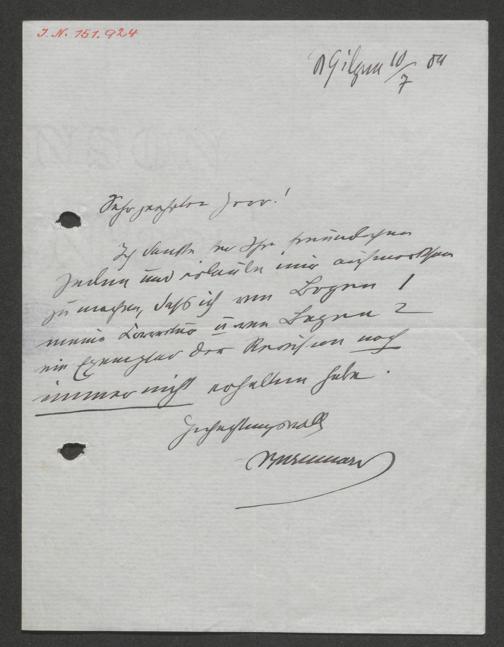 J. N. 151.924
StGilgen 10/7 04
Sehr geehrter Herr!
Ich danke für Ihr freundliches
und erlaube mir aufmerksam
zu machen, daß ich von Bogen 1
meine Correctur u von Bogen 2
ein Exemplar der Revision noch
immer nicht erhalten habe.
Hochachtungsvoll